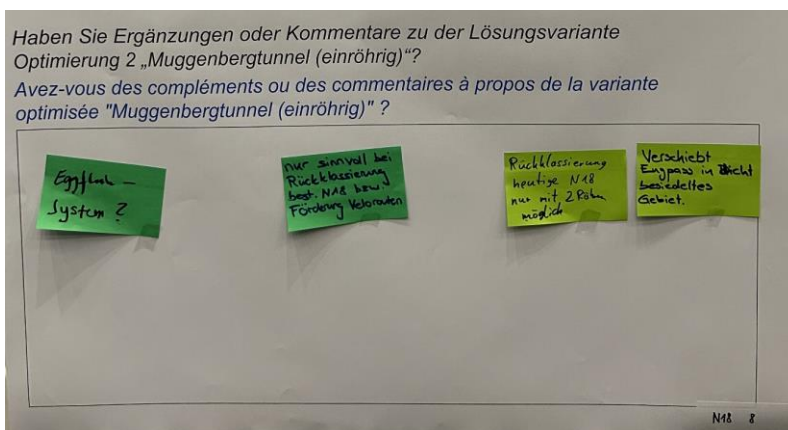 Haben Sie Ergänzungen oder Kommentare zu der Lösungsvariante
Optimierung 2 „Muggenbergtunnel (einröhrig)“?
Avez-vous des compléments ou des commentaires à propos de la variante
optimisée "Muggenbergtunnel (einröhrig)" ?
Eggfluh –
System ?
nur sinnvoll bei
Rückklassierung
best. N18 bzw
Förderung Velorouten
Rückklassierung
heutige N18
nur mit 2 Röhren
möglich
Verschiebt
Engpass in dicht
besiedeltes
Gebiet.
N18 8